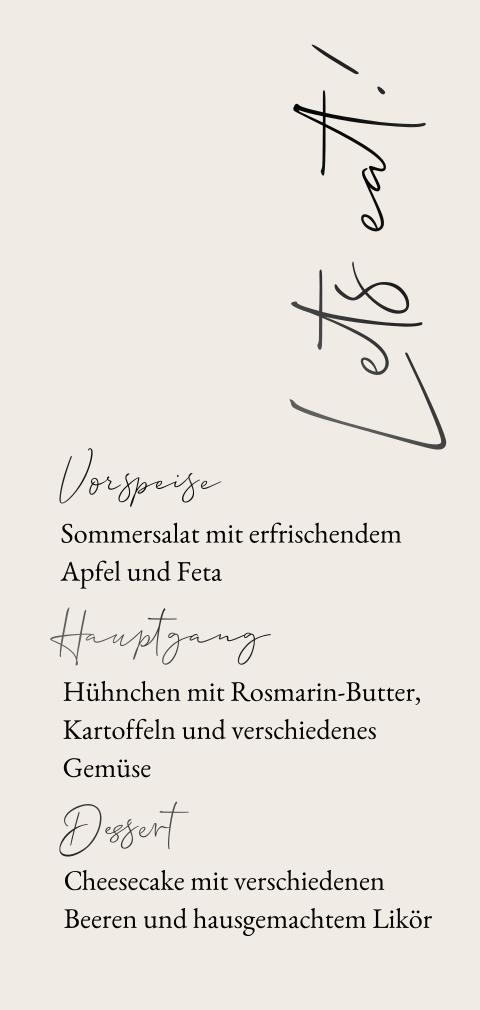 Lets eat!
Vorspeise
Sommersalat mit erfrischendem
Apfel und Feta
Hauptgang
Hühnchen mit Rosmarin-Butter,
Kartoffeln und verschiedenes
Gemüse
Dessert
Cheesecake mit verschiedenen
Beeren und hausgemachtem Likör